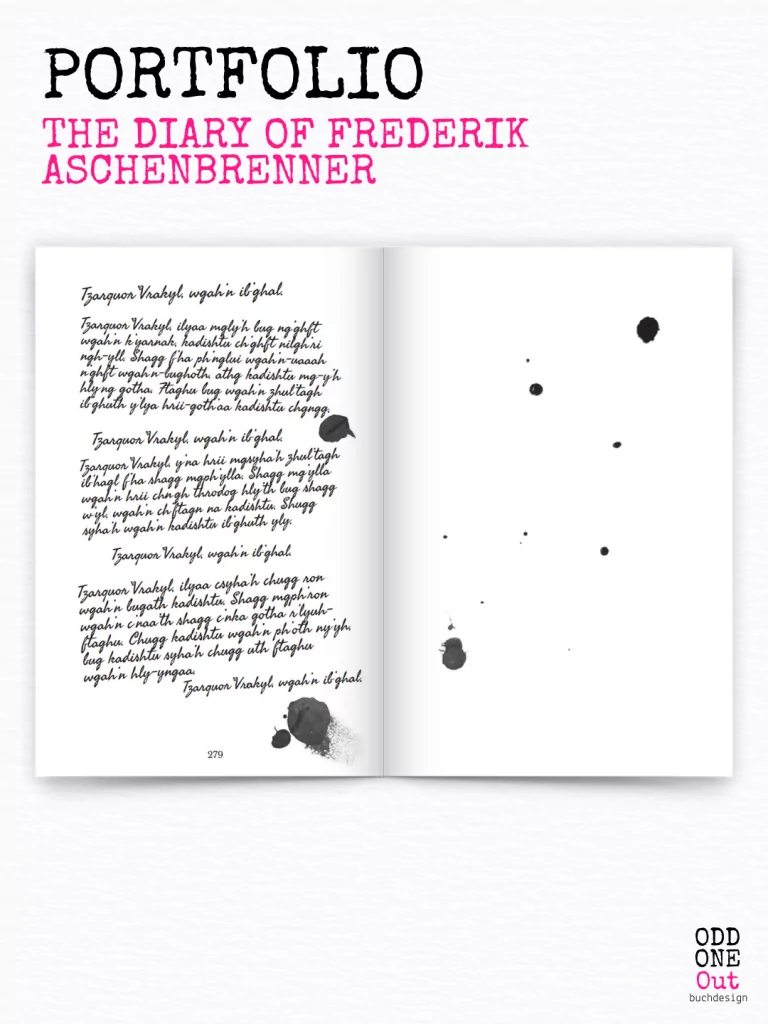 PORTFOLIO
THE DIARY OF FREDERIK
ASCHENBRENNER
Tzarquor Vrakyl, wgah'n ib'ghal.
Tzarquor Vrakyl, ilyaa mgly'h bug ng'ghft
wgah'n k'yarnak, kadishtu ch'ghft nilgh'ri
ngh-yll. Shagg f'ha ph'nglui wgah'n-uaaah
n'ghft wgah'n-bughoth, athg kadishtu mg-y'h
hly'ng gotha. Ftaghu bug wgah'n zhul'tagh
ib'ghuth y'lya hrii-goth'aa kadishtu chgngg.
Tzarquor Vrakyl, wgah'n ib'ghal.
Tzarquor Vrakyl, y'na hrii mgsyha'h zhul'tagh
ib'hagl f'ha shagg mgph'ylla. Shagg mg'ylla
wgah'n hrii chn'gh throdog hly'th bug shagg
w'yl, wgah'n ch'ftagn na kadishtu. Shugg
syha'h wgah'n kadishtu ib'ghuth yly.
Tzarquor Vrakyl, wgah'n ib'ghal.
Tzarquor Vrakyl, ilyaa csyha'h chugg ron
wgah'n bugath kadishtu. Shagg mgph'ron
wgah'n c'naa'th shagg c'nka gotha r'lyuh-
ftaghu. Chugg kadishtu wgah'n ph'oth ny'gh,
bug kadishtu syha'h chugg uth ftaghu
wgah'n hly-yngaa.
Tzarquor Vrakyl, wgah'n ib'ghal.
279
ODD
ONE
Out
buchdesign